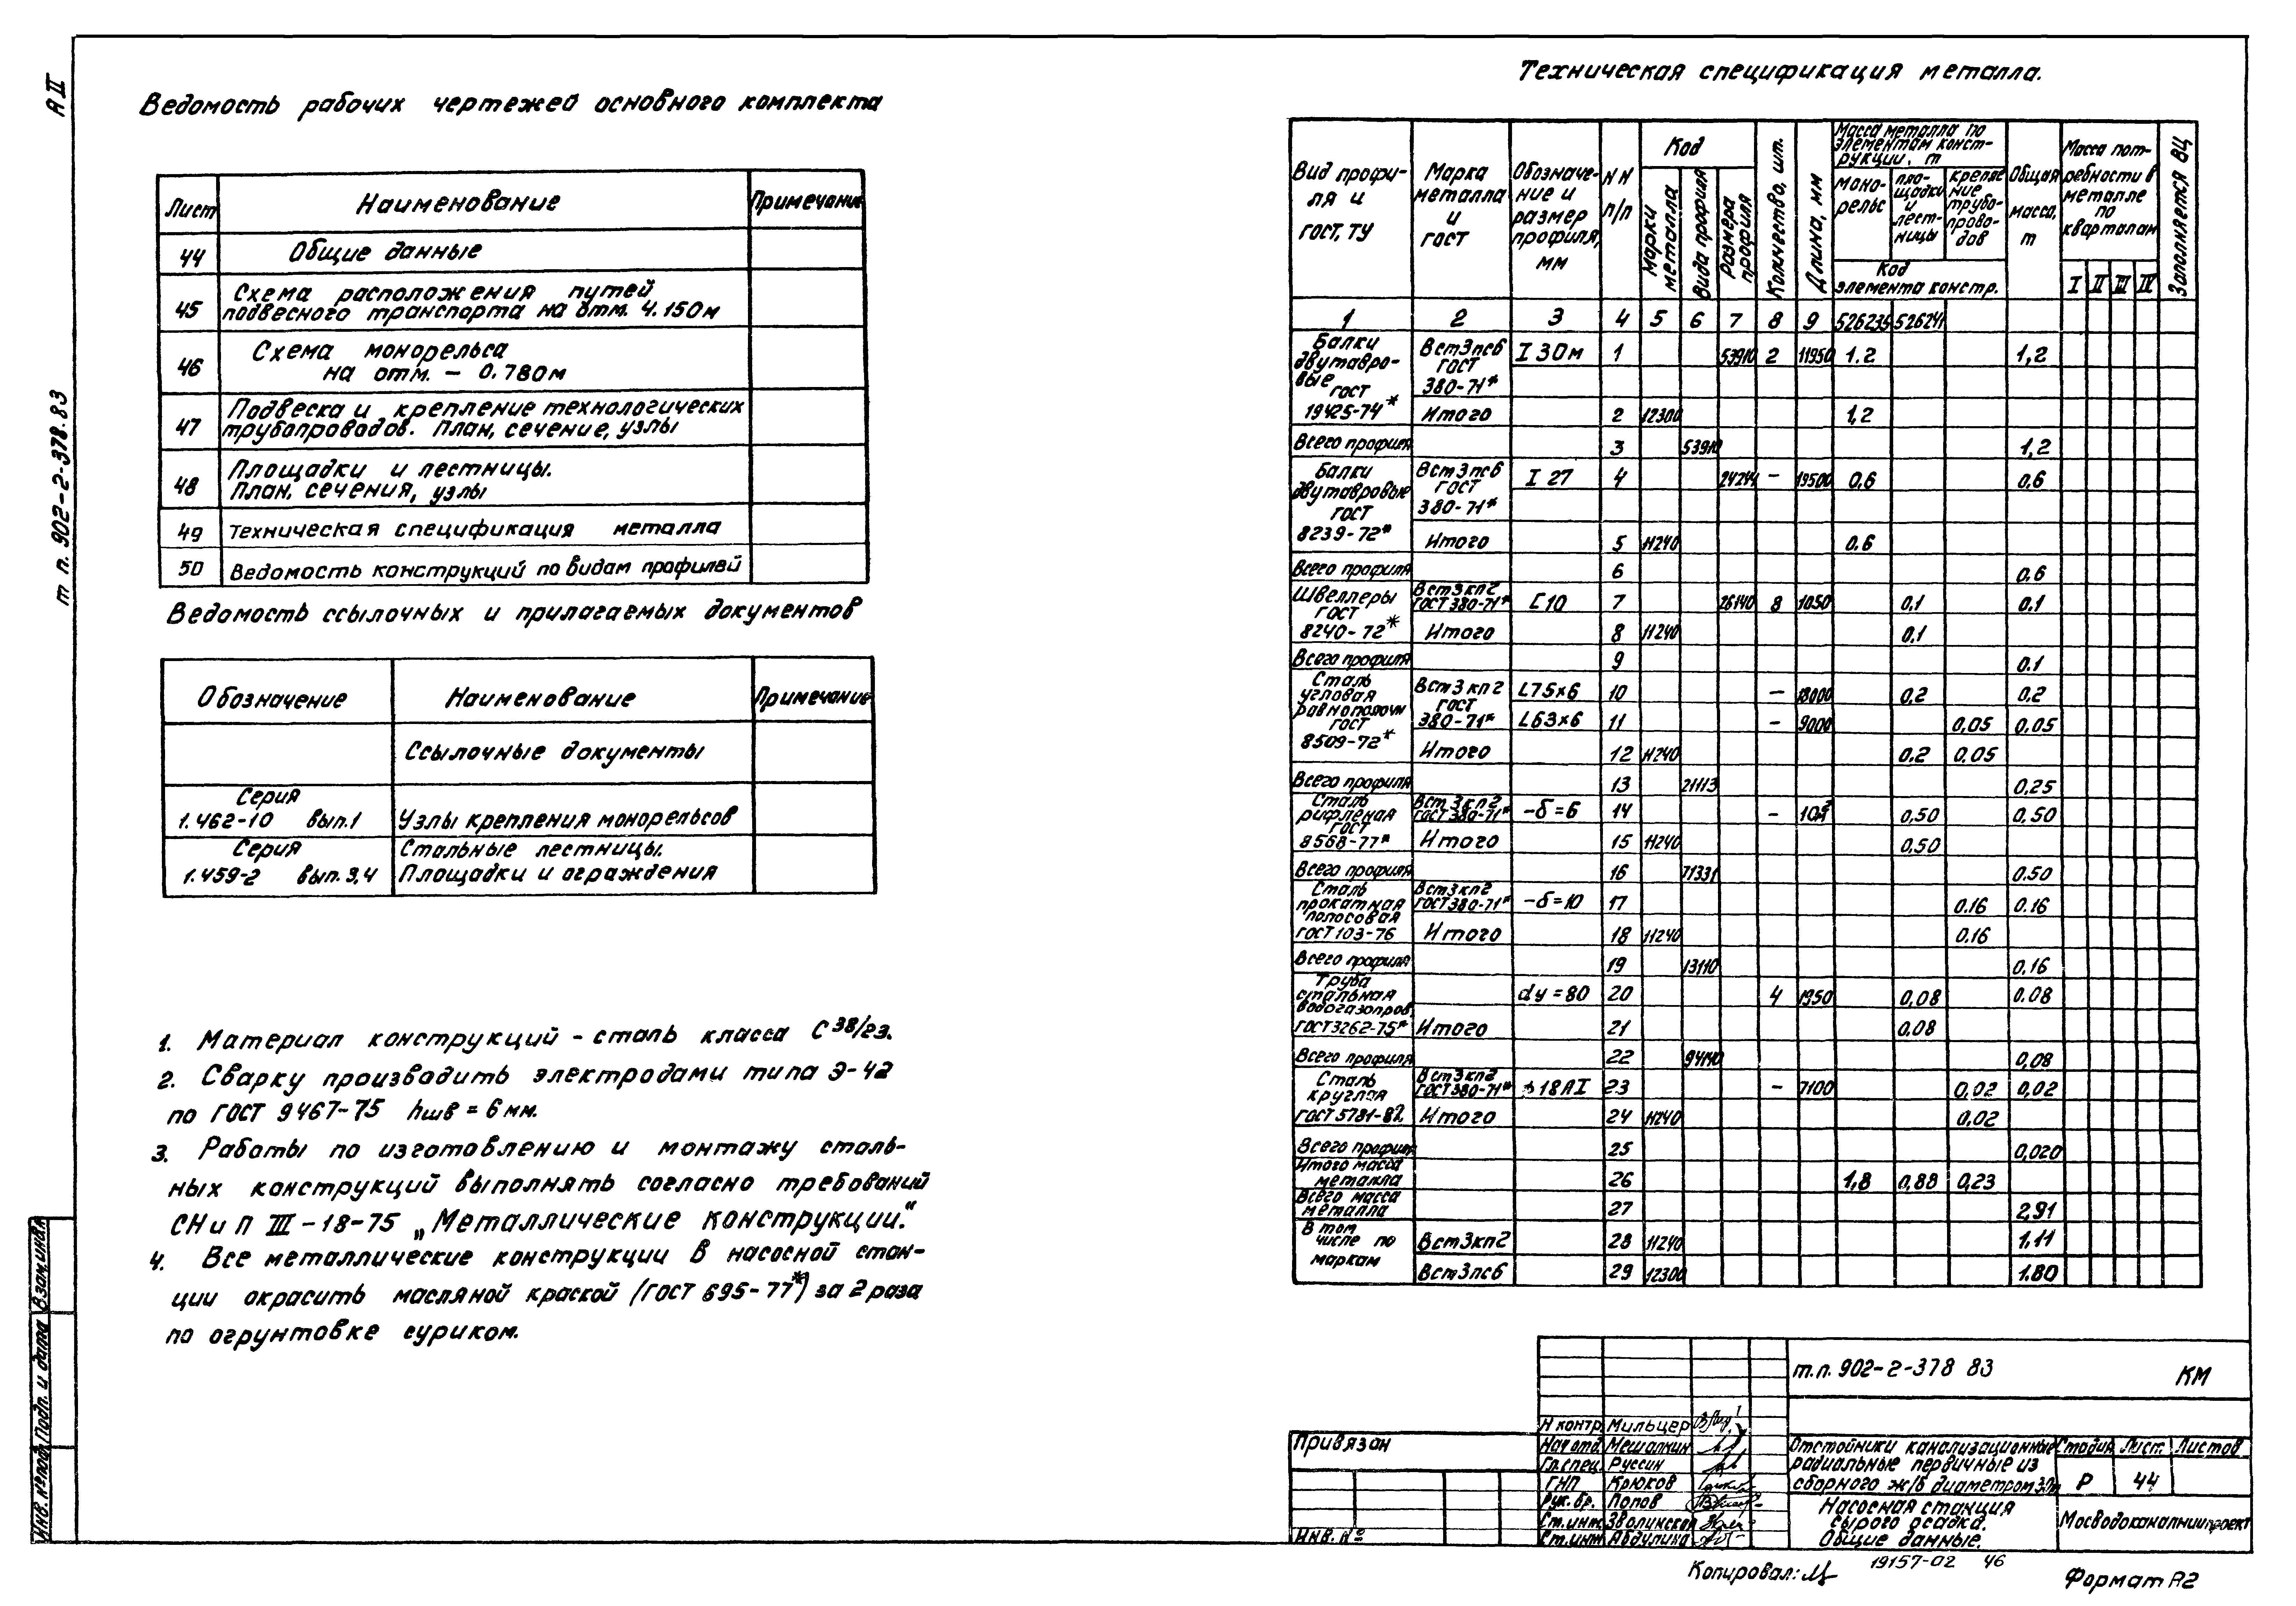 А II
т п. 902-2-378.83
Ведомость рабочих чертежей основного комплекта
Лист Наименование Примечание
44 Общие данные
45 Схема расположения путей
подвесного транспорта на отм. 4.150м
46 Схема монорельса
на отм. - 0.780м
47 Подвеска и крепление технологических
трубопроводов. План, сечение, узлы
48 Площадки и лестницы.
План, сечения, узлы
49 Техническая спецификация металла
50 Ведомость конструкций по видам профилей
Ведомость ссылочных и прилагаемых документов
Обозначение Наименование Примечание
Ссылочные документы
Серия
1.462-10 вып.1 Узлы крепления монорельсов
Серия Стальные лестницы.
1.459-2 вып. 3,4 Площадки и ограждения
1. Материал конструкций - сталь класса С 38/23.
2. Сварку производить электродами типа Э-42
по ГОСТ 9467-75 hшв = 6 мм.
3. Работы по изготовлению и монтажу сталь-
ных конструкций выполнять согласно требований
СНиП III-18-75 „Металлические конструкции."
4. Все металлические конструкции в насосной стан-
ции окрасить масляной краской (ГОСТ 695-77*) за 2 раза
по огрунтовке суриком.
Техническая спецификация металла.
Вид профи-
ля и
ГОСТ, ТУ
Марка
металла
и
ГОСТ
Обозначе-
ние и
размер
профиля,
мм
NN
п/п
Код
Марки металла
Вида профиля
Размера профиля
Количество, шт.
Длина, мм
Масса металла по
элементам конст-
рукции, т
Моно-
рельс
пло-
щадки
и
лест-
ницы
крепле
ние
трубо-
прово-
дов
Код
элемента констр.
Общая
масса,
т
Масса пот-
ребности в
металле
по
кварталам
I II III IV
Заполняется ВЦ
1 2 3 4 5 6 7 8 9 526235 526241
Балки
двутавро-
вые
ГОСТ
19425-74*
Вст3пс6
ГОСТ
380-71*
I 30м 1 53910 2 11950 1.2 1,2
Итого 2 12300 1,2
Всего профиля 3 53910 1,2
Балки
двутавровые
ГОСТ
8239-72*
Вст3пс6
ГОСТ
380-71*
I 27 4 24244 - 19500 0,6 0.6
Итого 5 11240 0.6
Всего профиля 6 0,6
Швеллеры
ГОСТ
8240-72*
Вст3кп2
ГОСТ 380-71*
[10 7 26140 8 1050 0,1 0.1
Итого 8 11240 0.1
Всего профиля 9 0.1
Сталь
угловая
равнополочн
ГОСТ
8509-72*
Вст3кп2
ГОСТ
380-71*
L75×6 10 - 18000 0.2 0.2
L63×6 11 - 9000 0,05 0.05
Итого 12 11240 0.2 0.05
Всего профиля 13 21113 0,25
Сталь
рифленая
ГОСТ
8568-77*
Вст3кп2
ГОСТ 380-71*
-δ=6 14 - 10м² 0,50 0,50
Итого 15 11240 0,50
Всего профиля 16 71331 0.50
Сталь
прокатная
полосовая
ГОСТ 103-76
Вст3кп2
ГОСТ 380-71*
-δ=10 17 0.16 0.16
Итого 18 11240 0.16
Всего профиля 19 13110 0,16
Труба
стальная
водогазопров.
ГОСТ 3262-75*
dy=80 20 4 1950 0,08 0.08
Итого 21 0,08
Всего профиля 22 94140 0,08
Сталь
круглая
ГОСТ 5781-82
Вст3кп2
ГОСТ 380-71*
ф18АI 23 - 7100 0,02 0,02
Итого 24 11240 0,02
Всего профиля 25 0,020
Итого масса
металла 26 1,8 0,88 0,23
Всего масса
металла 27 2,91
В том
числе по
маркам
Вст3кп2 28 11240 1.11
Вст3пс6 29 12300 1.80
т.п. 902-2-378 83 КМ
Привязан
Инв. №
Н контр. Мильцер
Нач отд Мешалкин
Гл.спец. Руссин
ГИП Крюков
Рук. бр. Попов
Ст.инж. Зволинская
Ст.инж Абдулина
Отстойники канализационные
радиальные первичные из
сборного ж/б диаметром 30м
Стадия Лист Листов
Р 44
Насосная станция
сырого осадка.
Общие данные.
МосводоканалНИИпроект
Копировал:
19157-02 46
Формат А2
Взам.инв.№
Подп. и дата
Инв. № подл.